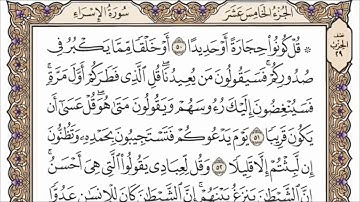 الجزء الخامس عشر
سورة الإسراء
قُلْ كُونُوا۟ حِجَارَةً أَوْ حَدِيدًا ۝٥٠ أَوْ خَلْقًا مِّمَّا يَكْبُرُ فِى
صُدُورِكُمْ ۚ فَسَيَقُولُونَ مَن يُعِيدُنَا ۖ قُلِ ٱلَّذِى فَطَرَكُمْ أَوَّلَ مَرَّةٍ ۚ
فَسَيُنْغِضُونَ إِلَيْكَ رُءُوسَهُمْ وَيَقُولُونَ مَتَىٰ هُوَ ۖ قُلْ عَسَىٰٓ أَن
يَكُونَ قَرِيبًا ۝٥١ يَوْمَ يَدْعُوكُمْ فَتَسْتَجِيبُونَ بِحَمْدِهِۦ وَتَظُنُّونَ
إِن لَّبِثْتُمْ إِلَّا قَلِيلًا ۝٥٢ وَقُل لِّعِبَادِى يَقُولُوا۟ ٱلَّتِى هِىَ أَحْسَنُ ۚ
إِنَّ ٱلشَّيْطَٰنَ يَنزَغُ بَيْنَهُمْ ۚ إِنَّ ٱلشَّيْطَٰنَ كَانَ لِلْإِنسَٰنِ عَدُوًّا